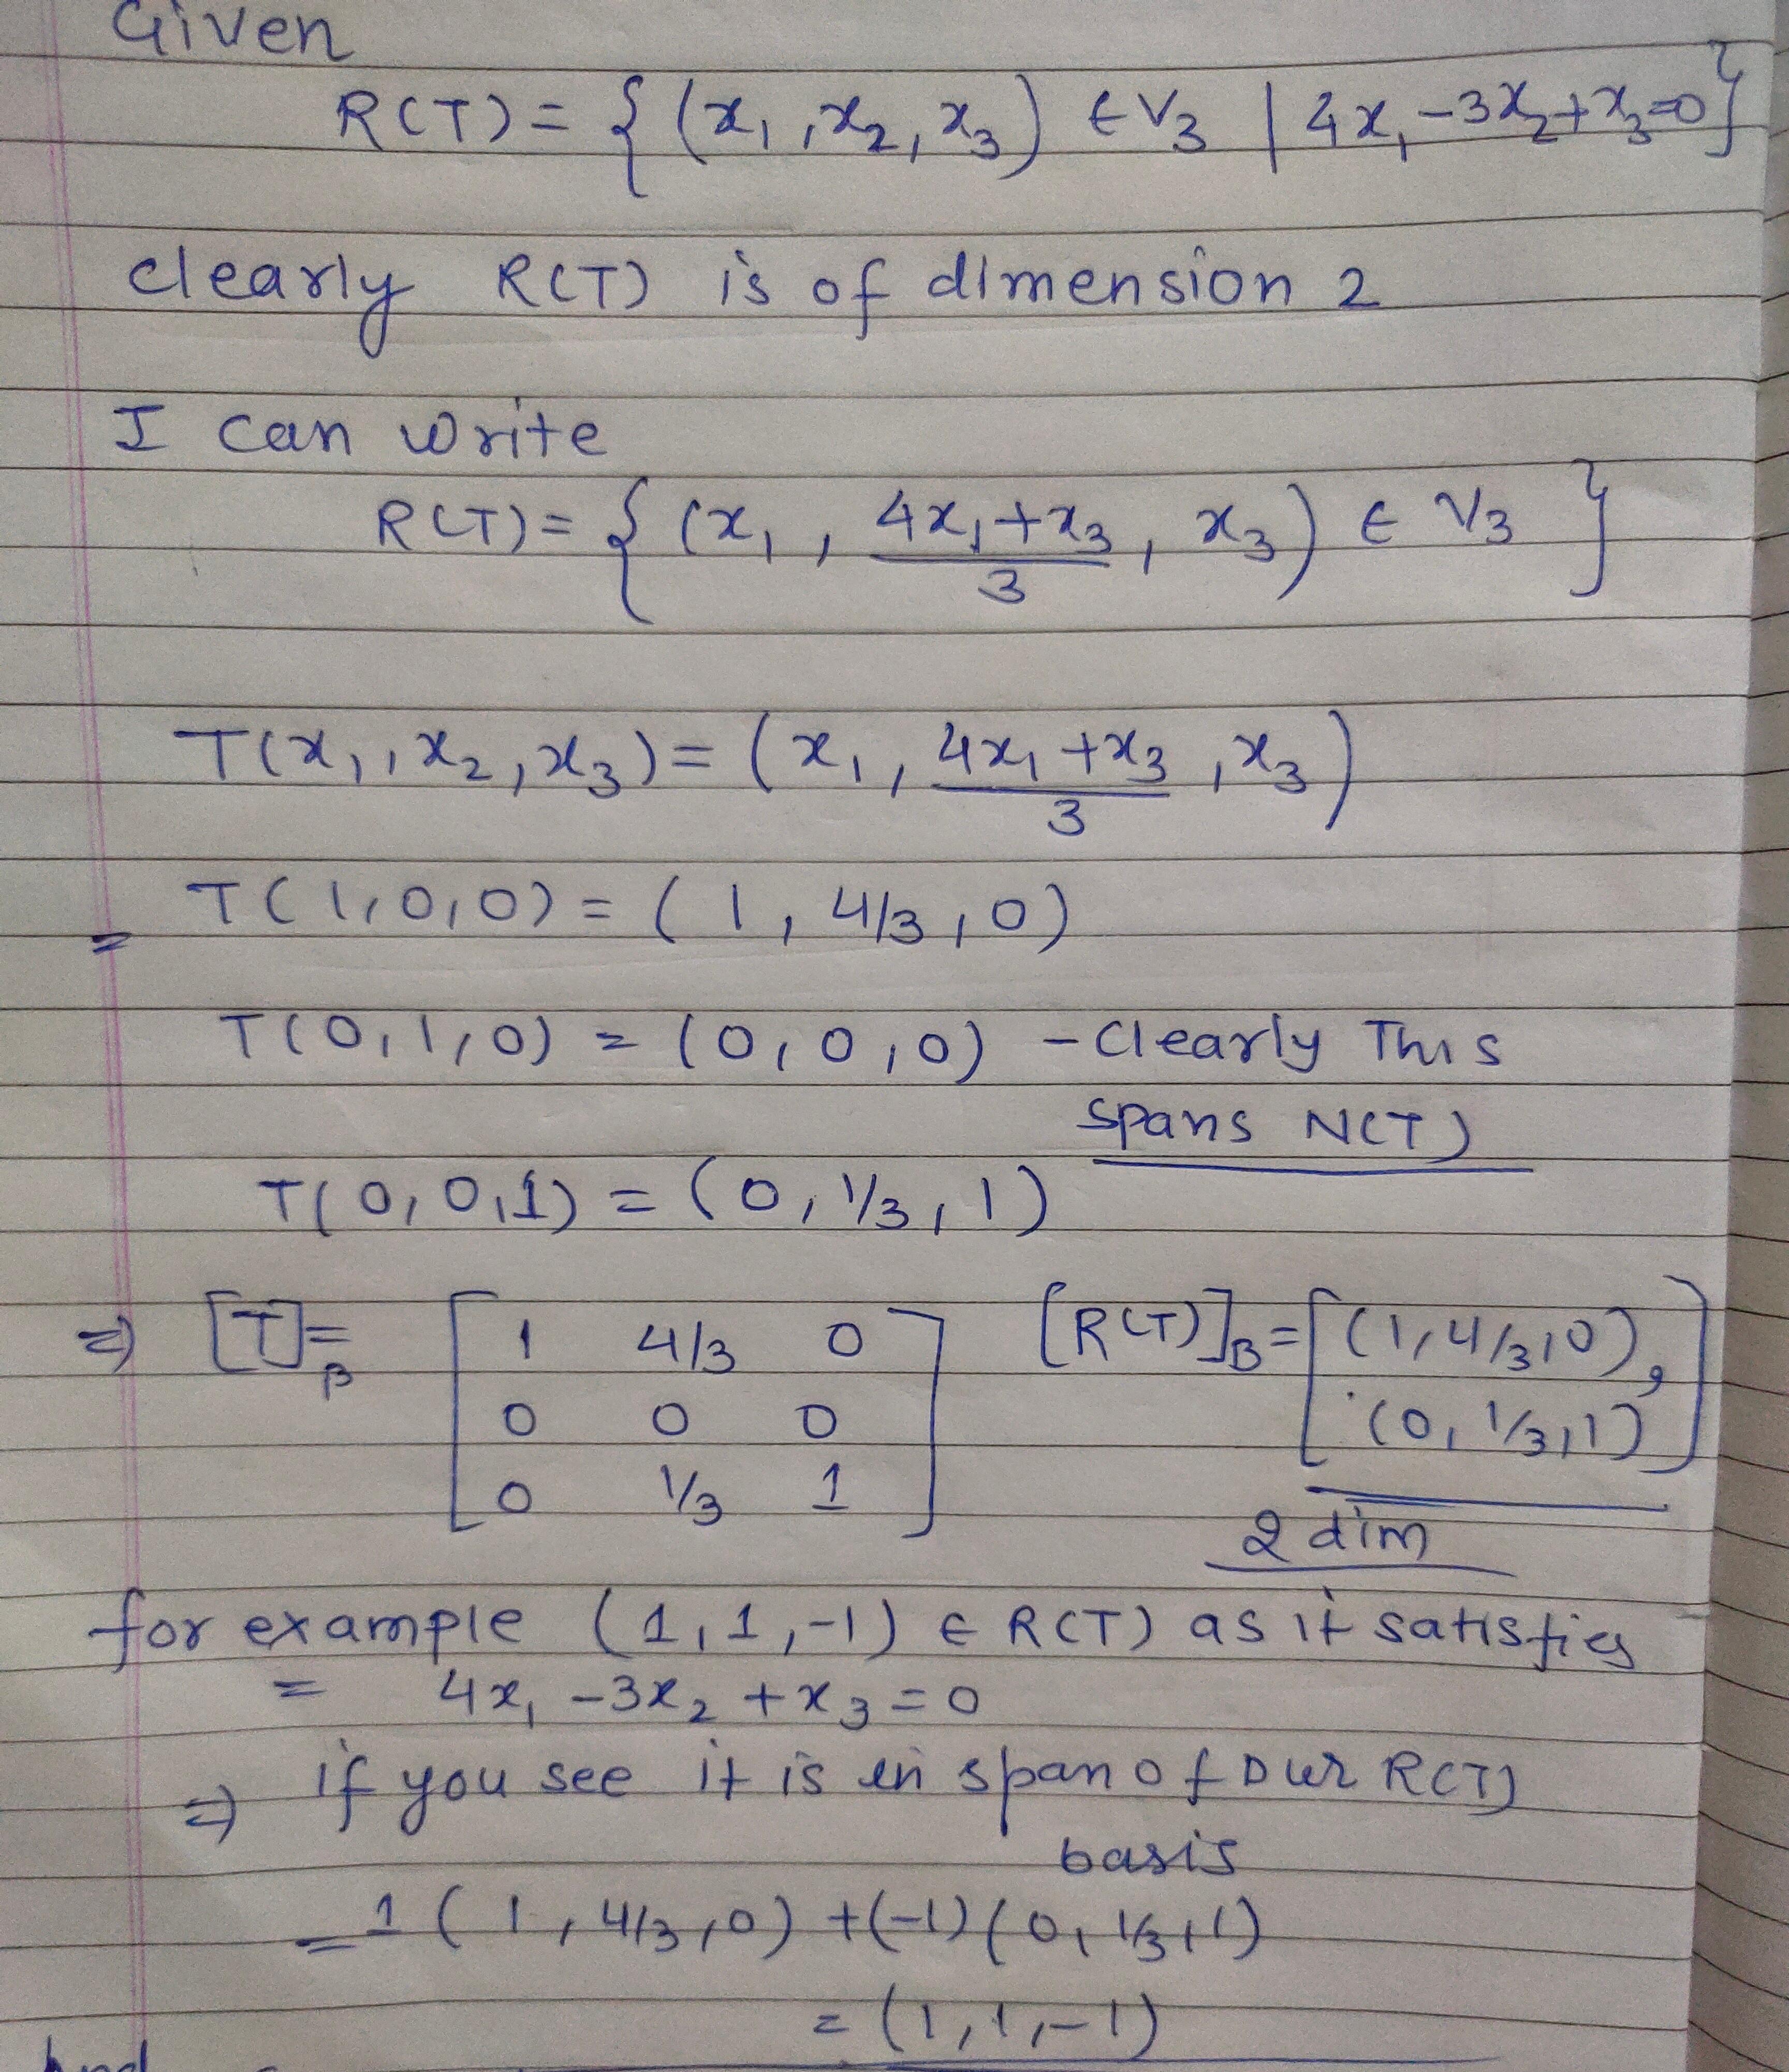 Given
R(T) = { (x₁, x₂, x₃) ∈ V₃ | 4x₁ - 3x₂ + x₃ = 0 }
clearly R(T) is of dimension 2
I can write
R(T) = { (x₁, (4x₁ + x₃)/3, x₃) ∈ V₃ }
T(x₁, x₂, x₃) = (x₁, (4x₁ + x₃)/3, x₃)
= T(1, 0, 0) = (1, 4/3, 0)
T(0, 1, 0) = (0, 0, 0) - Clearly This
spans N(T)
T(0, 0, 1) = (0, 1/3, 1)
⇒ [T]_β = [ 1 4/3 0 [R(T)]_B = [ (1, 4/3, 0),
0 0 0 (0, 1/3, 1) ]
0 1/3 1 ]
2 dim
for example (1, 1, -1) ∈ R(T) as it satisfies
= 4x₁ - 3x₂ + x₃ = 0
⇒ if you see it is in span of our R(T)
basis
= 1(1, 4/3, 0) + (-1)(0, 1/3, 1)
= (1, 1, -1)